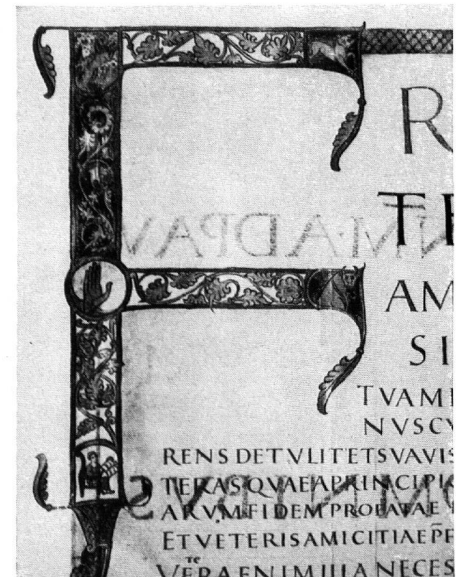 F R
TE
AM
SI
TVAMI
NVSCV
RENS DETVLITETSVAVIS
TERASQVAEAPRINCIPI
ARVMFIDEMPROBATAE
ETVETERISAMICITIAEP̄F
te
VERAENIMILLANECES